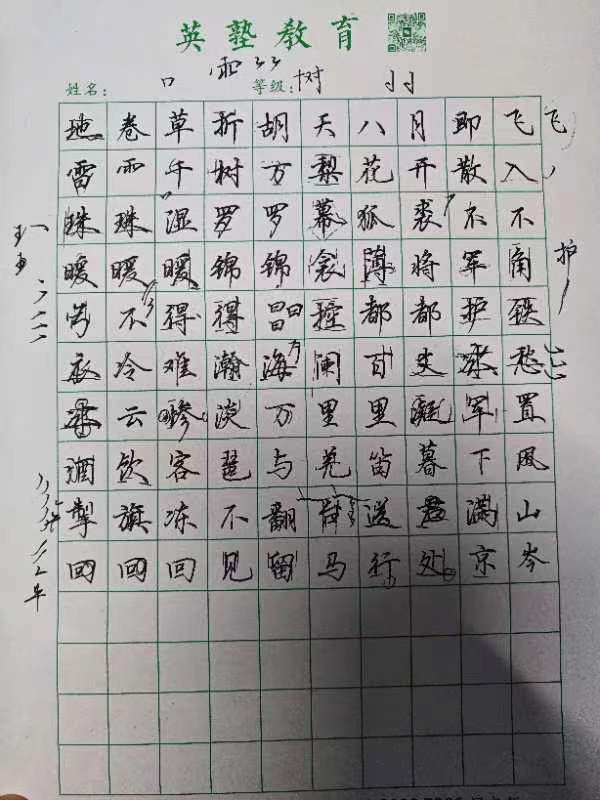 英塾教育
姓名： 口 雪 等级：树
地卷草折胡天八月即飞飞
雷雨千树万梨花开散入
珠珠湿罗罗幕狐裘不不
暖暖暖锦锦衾薄将军角护
不得得昌控都都护铁
衣冷难瀚海阑百丈冰愁
云惨淡万里里凝军置
酒饮客琵与羌笛暮下风
掣旗冻不翻辞送君满山
回回回见留马行处京岑